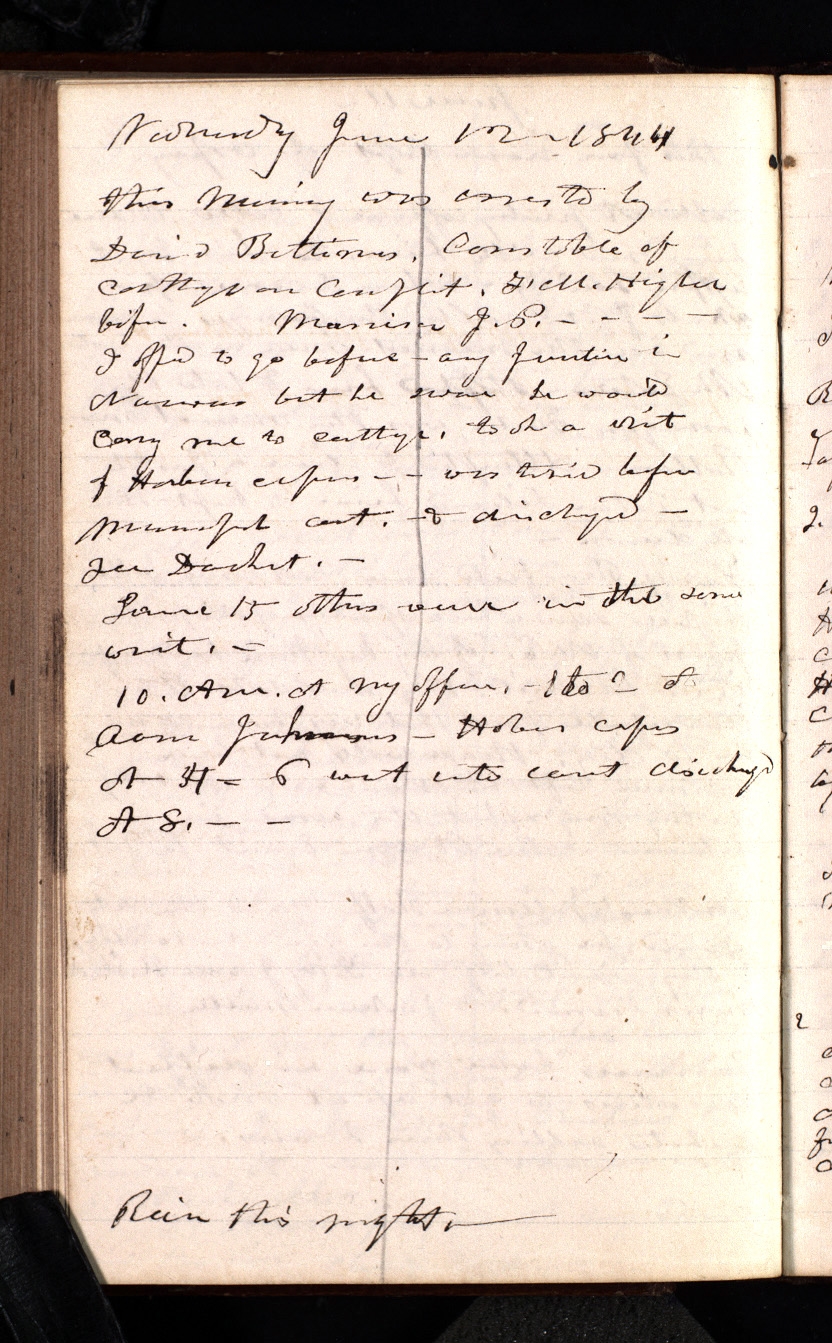 Wednesdy June 12 1844
this Morning was arrestd by
David Bettisws. Constable of
Carthge on Complit. F. M. Higbee
befor. Morrison J.P. - - - -
I offrd to go before - any Justice in
Nauvoo but he swore he would
carry me to Carthge. took a writ
of Habeus corpus - - was tried before
Municipl cout. - & dischged -
see Docket. -
Some 15 others were in the same
writ. -
10. Am. at my office. -
- Habes corpus
at 6 wnt into court dischagd
at 8. - -
Rain this night. -